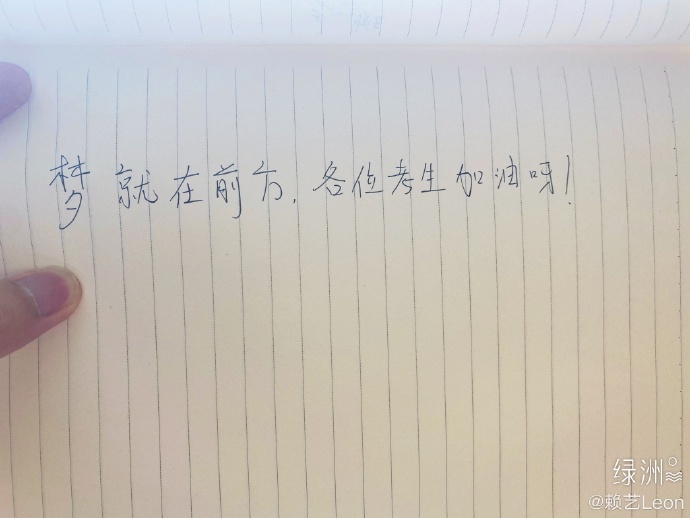 梦就在前方，各位考生加油呀！
绿洲
@赖艺Leon